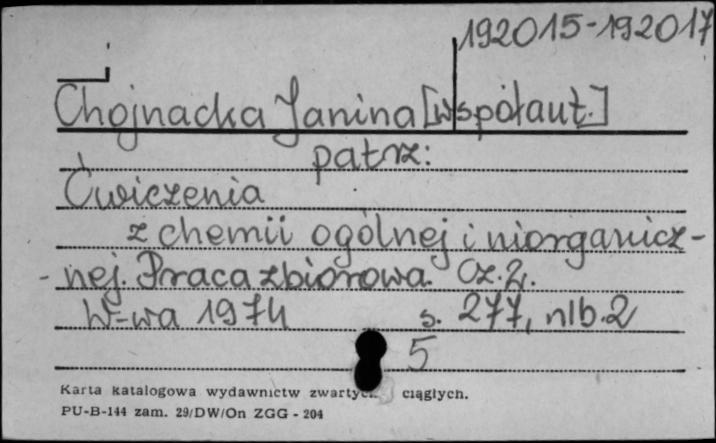 192015-192017
Chojnacka Janina [współaut.]
patrz:
Ćwiczenia
z chemii ogólnej i niorganicz-
-nej. Praca zbiorowa. Cz. 2.
W-wa 1974 s. 277, nlb. 2
5
Karta katalogowa wydawnictw zwartych ciągłych.
PU-B-144 zam. 29/DW/On ZGG - 204